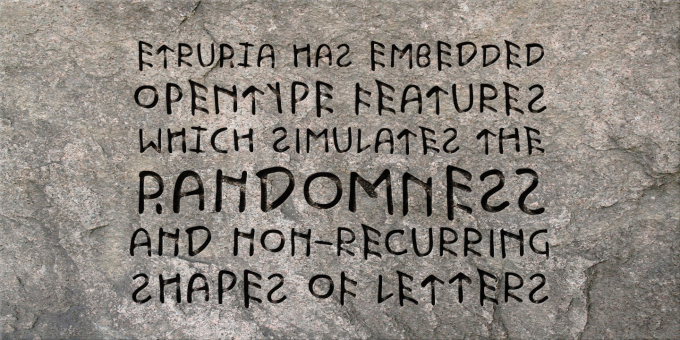 ETRURIA HAS EMBEDDED
OPENTYPE FEATURES
WHICH SIMULATES THE
RANDOMNESS
AND NON-RECURRING
SHAPES OF LETTERS